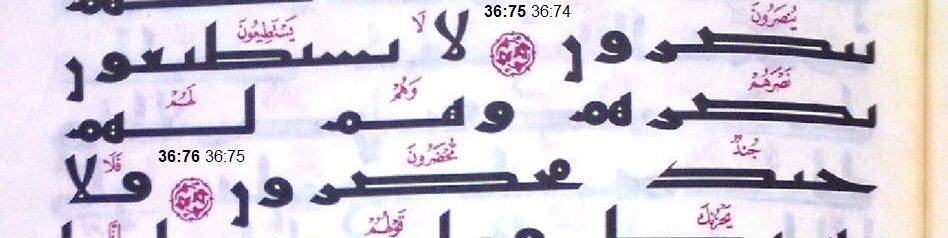 يُنصَرُونَ 36:75 36:74 لَا يَسْتَطِيعُونَ
ينصرون لا يستطيعون
نَصْرَهُمْ وَهُمْ لَهُمْ
نصرهم وهم لهم
جُندٌ مُّحْضَرُونَ 36:76 36:75 فَلَا
جند محضرون فلا
يَحْزُنكَ قَوْلُهُمْ إِنَّا